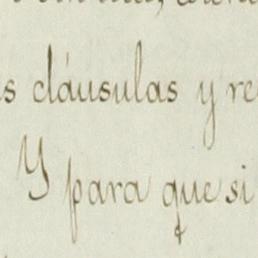 cláusulas y
Y para que si